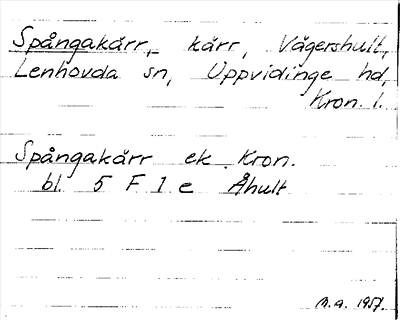 Spångakärr, kärr, Vågershult,
Lenhovda sn, Uppvidinge hd,
Kron. l.
Spångakärr ek. Kron.
bl. 5 F 1 e Åhult
M.A. 1957.